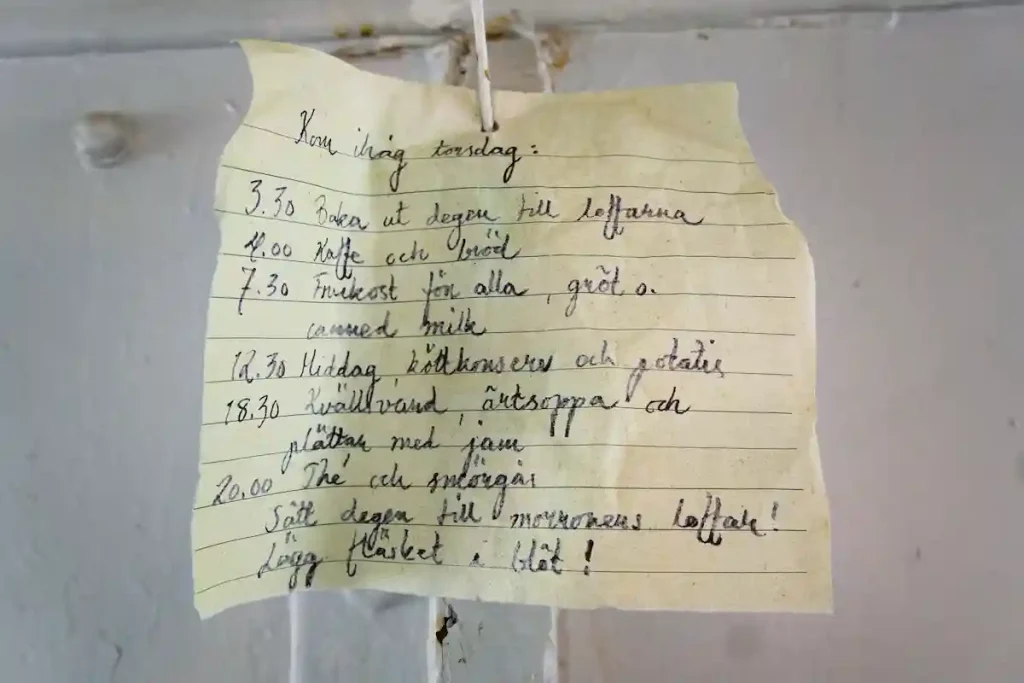 Kom ihåg torsdag:
3.30 Baka ut degen till loffarna
4.00 Kaffe och bröd
7.30 Frukost för alla, gröt o.
canned milk
12.30 Middag, köttkonserv och potatis
18.30 Kvällsvard, ärtsoppa och
plättar med jam
20.00 Thé och smörgås
Sätt degen till morronens loffar!
Lägg fläsket i blöt!